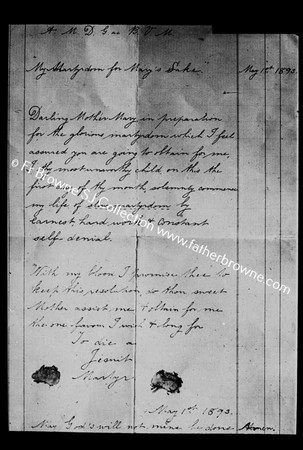 A. M. D. G. ac B. V. M.
My Martyrdom for Mary's Sake. May 1st 1893.
Darling Mother Mary in preparation
for the glorious martyrdom which I feel
assured you are going to obtain for me,
I thy most unworthy child on this the
first day of thy month, solemnly commence
my life of slow martyrdom by
earnest hard work & Constant
self-denial.
With my blood I promise thee to
keep this resolution, do thou sweet
Mother assist me & obtain for me
the one favour I wish & long for
To die a
Jesuit
Martyr
May 1st 1893.
May God's will not mine be done Amen.
© Fr Browne SJ Collection www.fatherbrowne.com